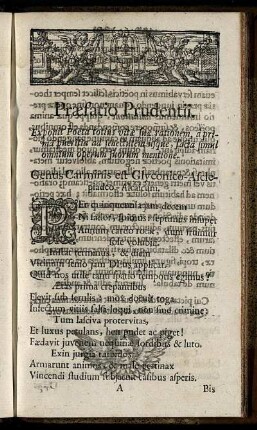 Præfatio Prudentii.
Exponit Poeta totius vitæ suæ rationem, à pri-
mâ pueritiâ ad senectutem usque, factâ simul
omnium operum suorum mentione.
Genus Carminis est Glyconico-Ascle-
piadeo-
PEr quinquennia jam decem
Ni fallor, fuimus: septimus insuper
Annum cardo rotat, dum fruimur
sole volubili.
Instat terminus, & diem
Vicinum senio jam Deus applicat.
Quid nos utile tanti spatio temporis egimus?
Ætas prima crepantibus
Flevit sub ferulis: mox docuit toga
Infectum vitiis falsa loqui, non sine crimine:
Tum lasciva protervitas,
Et luxus petulans, heu pudet ac piget!
Fœdavit juvenem nequitiæ sordibus & luto.
Exin jurgia turbidos
Armarunt animos, & malè pertinax
Vincendi studium subjacuit casibus asperis.
A
Bis